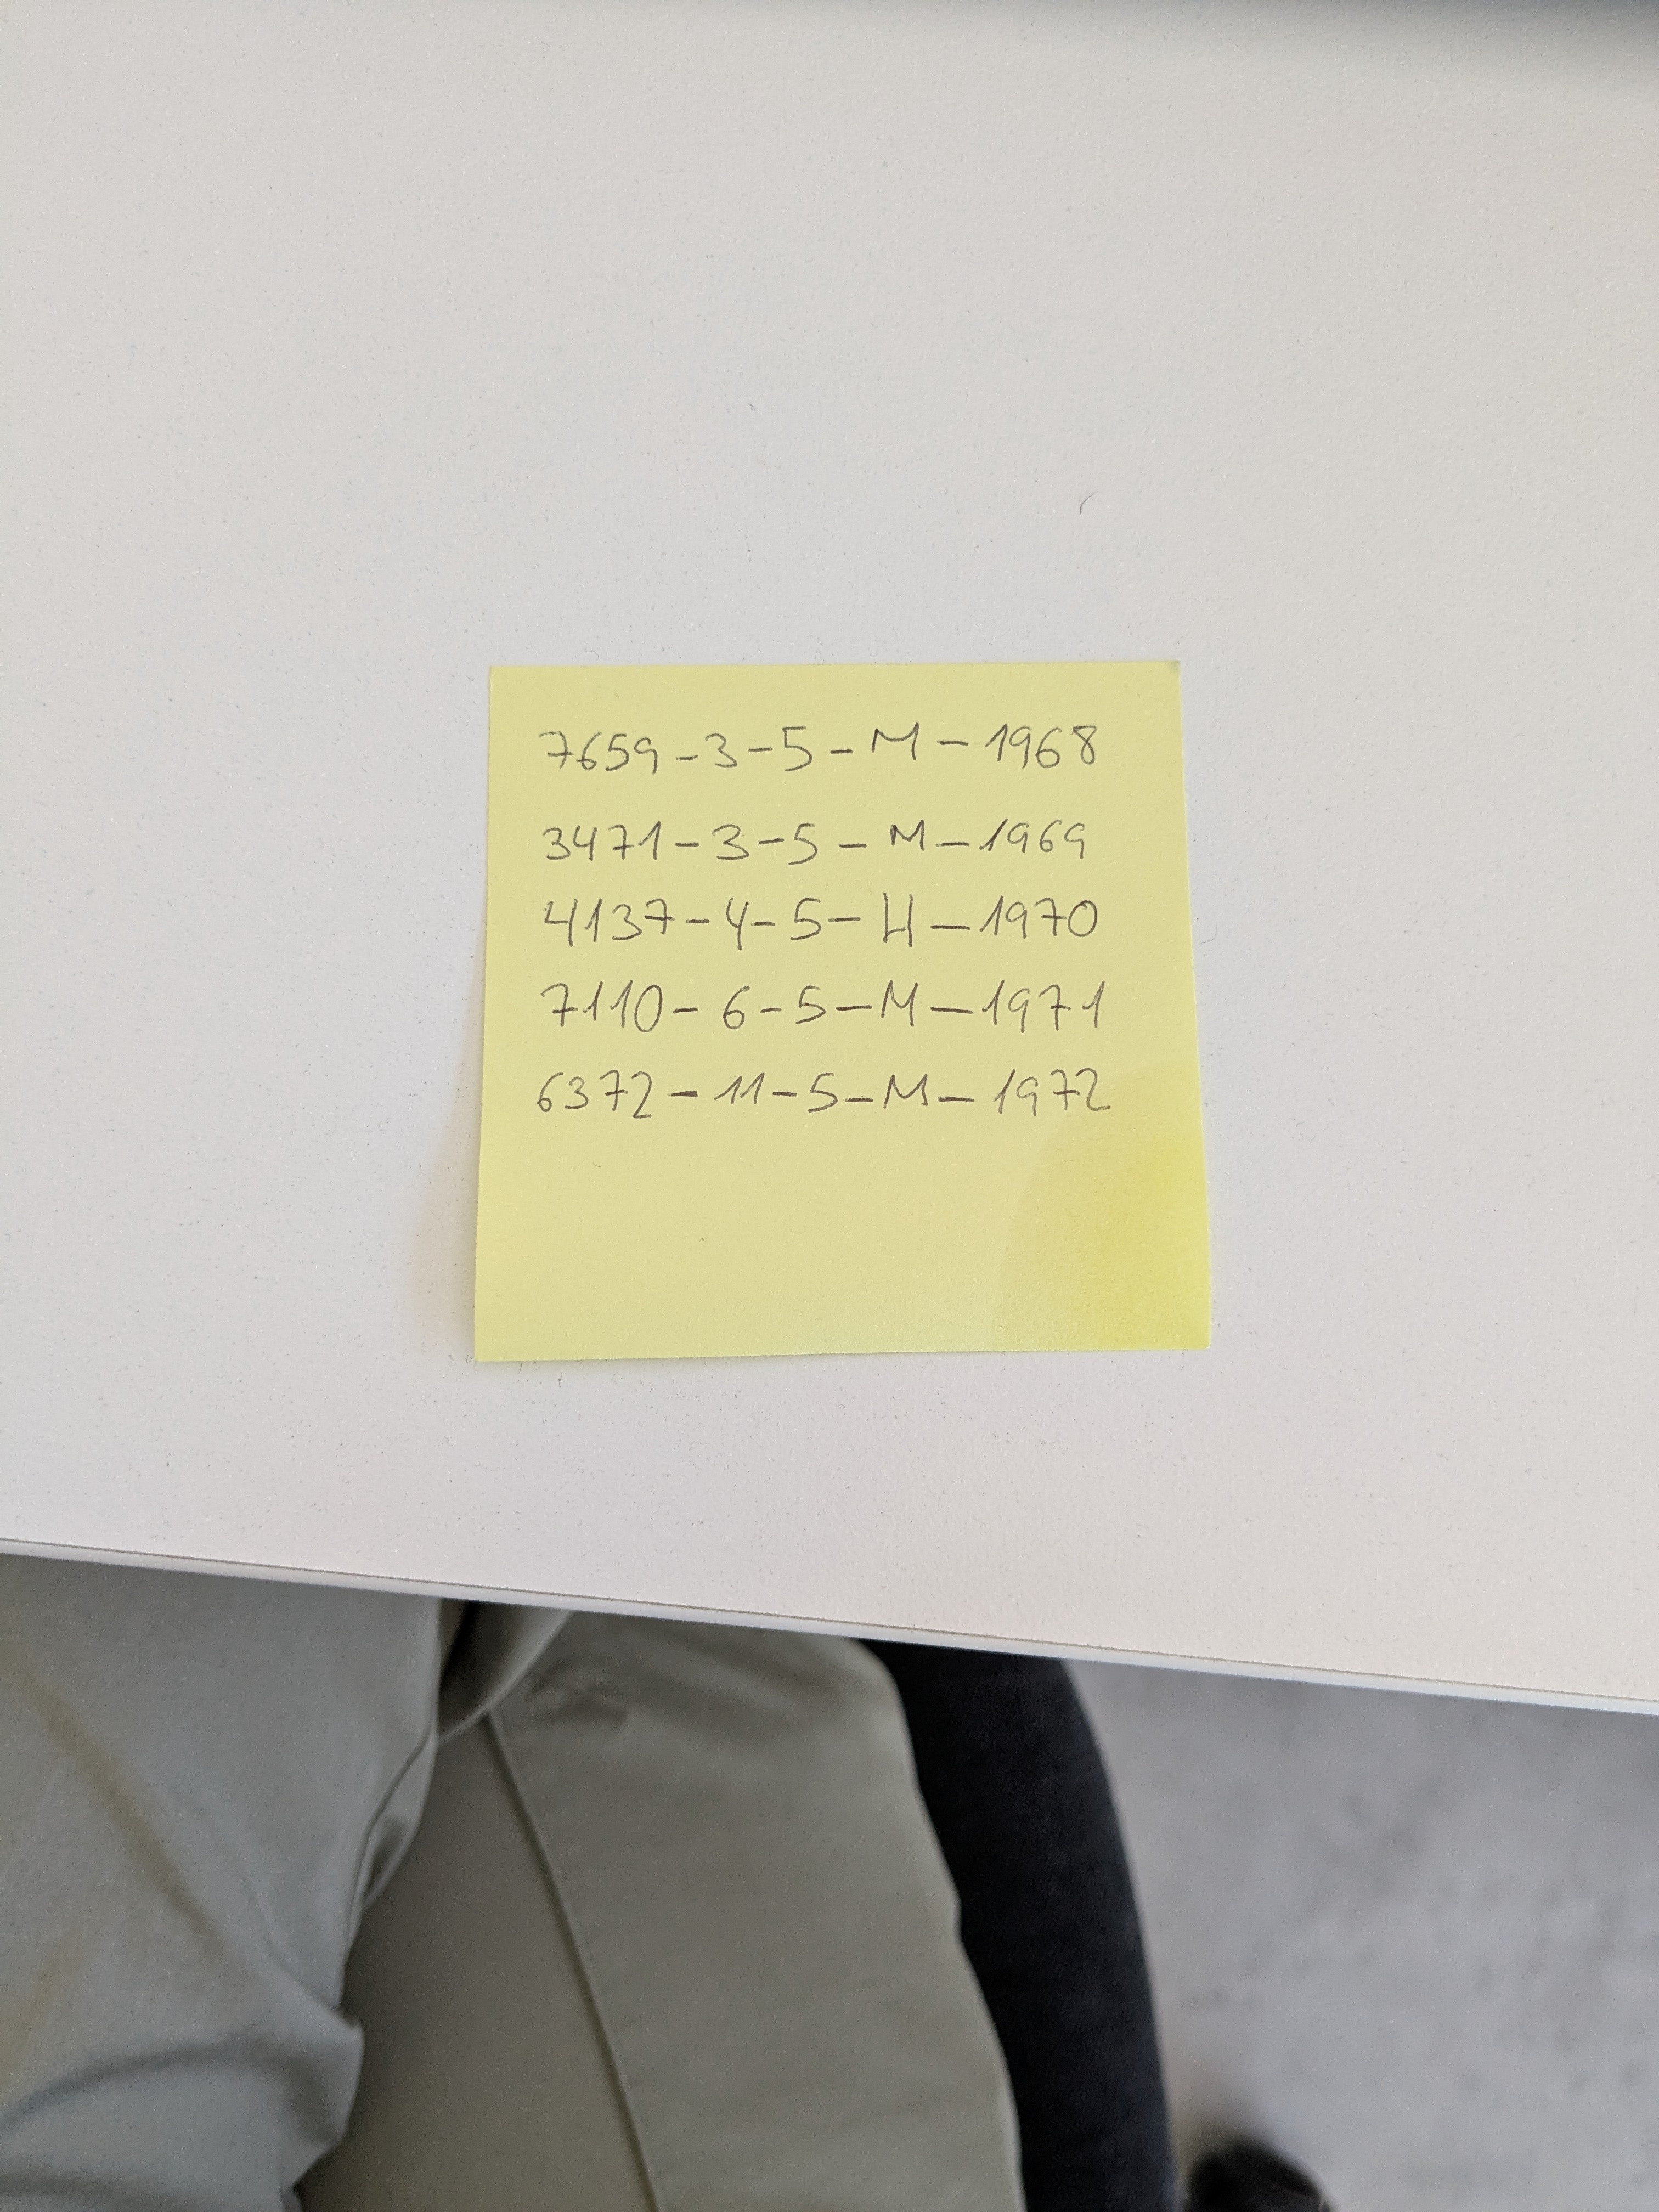 7659-3-5-M-1968
3471-3-5-M-1969
4137-4-5-H-1970
7110-6-5-M-1971
6372-11-5-M-1972